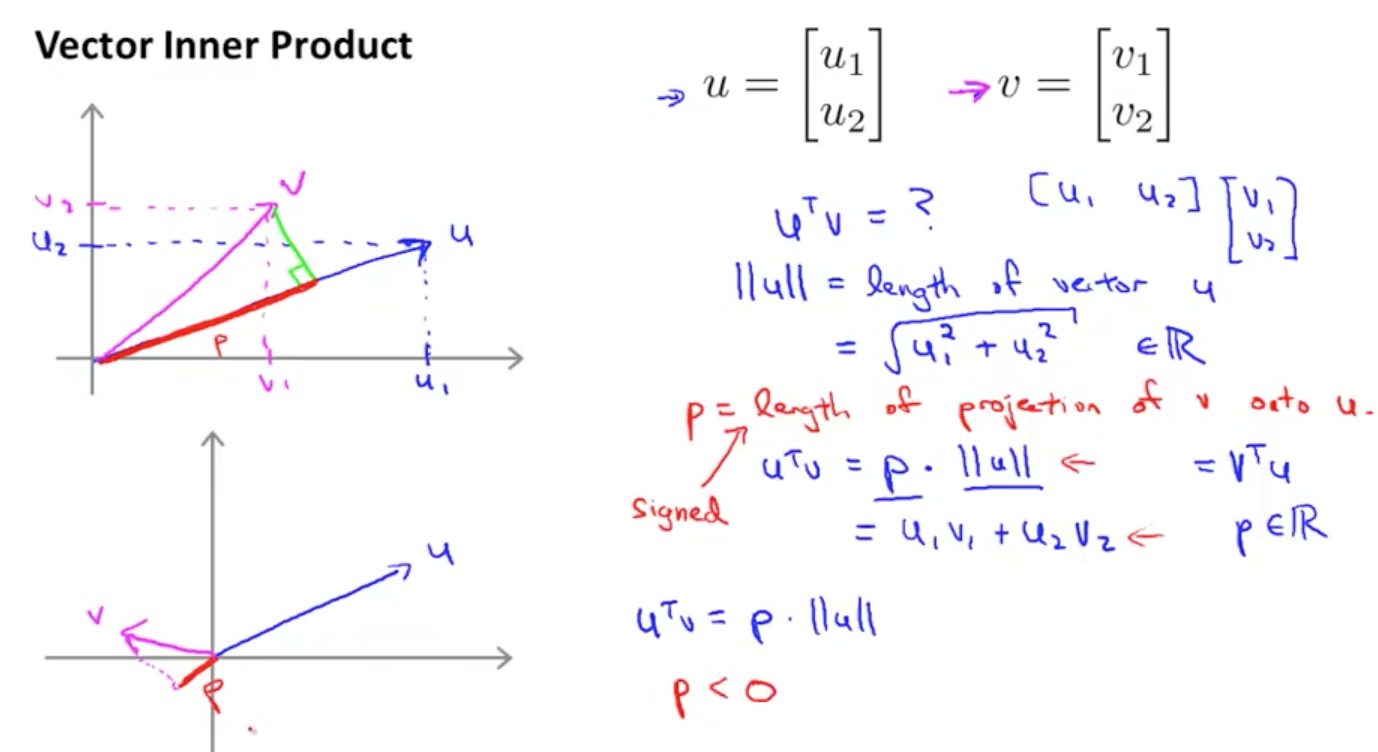 Vector Inner Product
→ u = [u₁ u₂] → v = [v₁ v₂]
v₂
u₂
v
u
p
v₁
u₁
uᵀv = ? [u₁ u₂] [v₁ v₂]
||u|| = length of vector u
= √(u₁² + u₂²) ∈ ℝ
p = length of projection of v onto u.
signed
uᵀv = p · ||u|| ← = vᵀu
= u₁v₁ + u₂v₂ ← p ∈ ℝ
u
v
p
uᵀv = p · ||u||
p < 0